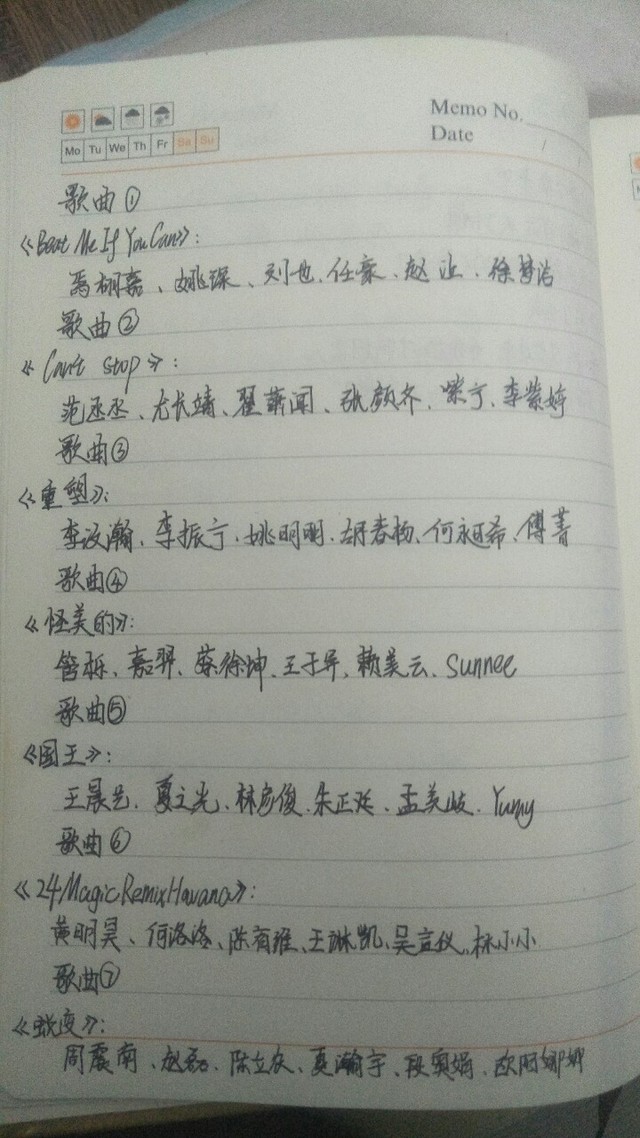 Memo No.
Date
Mo Tu We Th Fr Sa Su
歌曲①
《Beat Me If You Can》：
焉栩嘉、姚琛、刘也、任豪、赵让、徐梦洁
歌曲②
《Can't stop》：
范丞丞、尤长靖、翟潇闻、张颜齐、紫宁、李紫婷
歌曲③
《重塑》：
李汶翰、李振宁、姚明明、胡春杨、何昶希、傅菁
歌曲④
《怪美的》：
管栎、嘉羿、蔡徐坤、王子异、赖美云、Sunnee
歌曲⑤
《国王》：
王晨艺、夏之光、林彦俊、朱正廷、孟美岐、Yamy
歌曲⑥
《24MagicRemixHavana》：
黄明昊、何洛洛、陈宥维、王琳凯、吴宣仪、林小小
歌曲⑦
《蜕变》：
周震南、赵磊、陈立农、夏瀚宇、段奥娟、欧阿娜娜